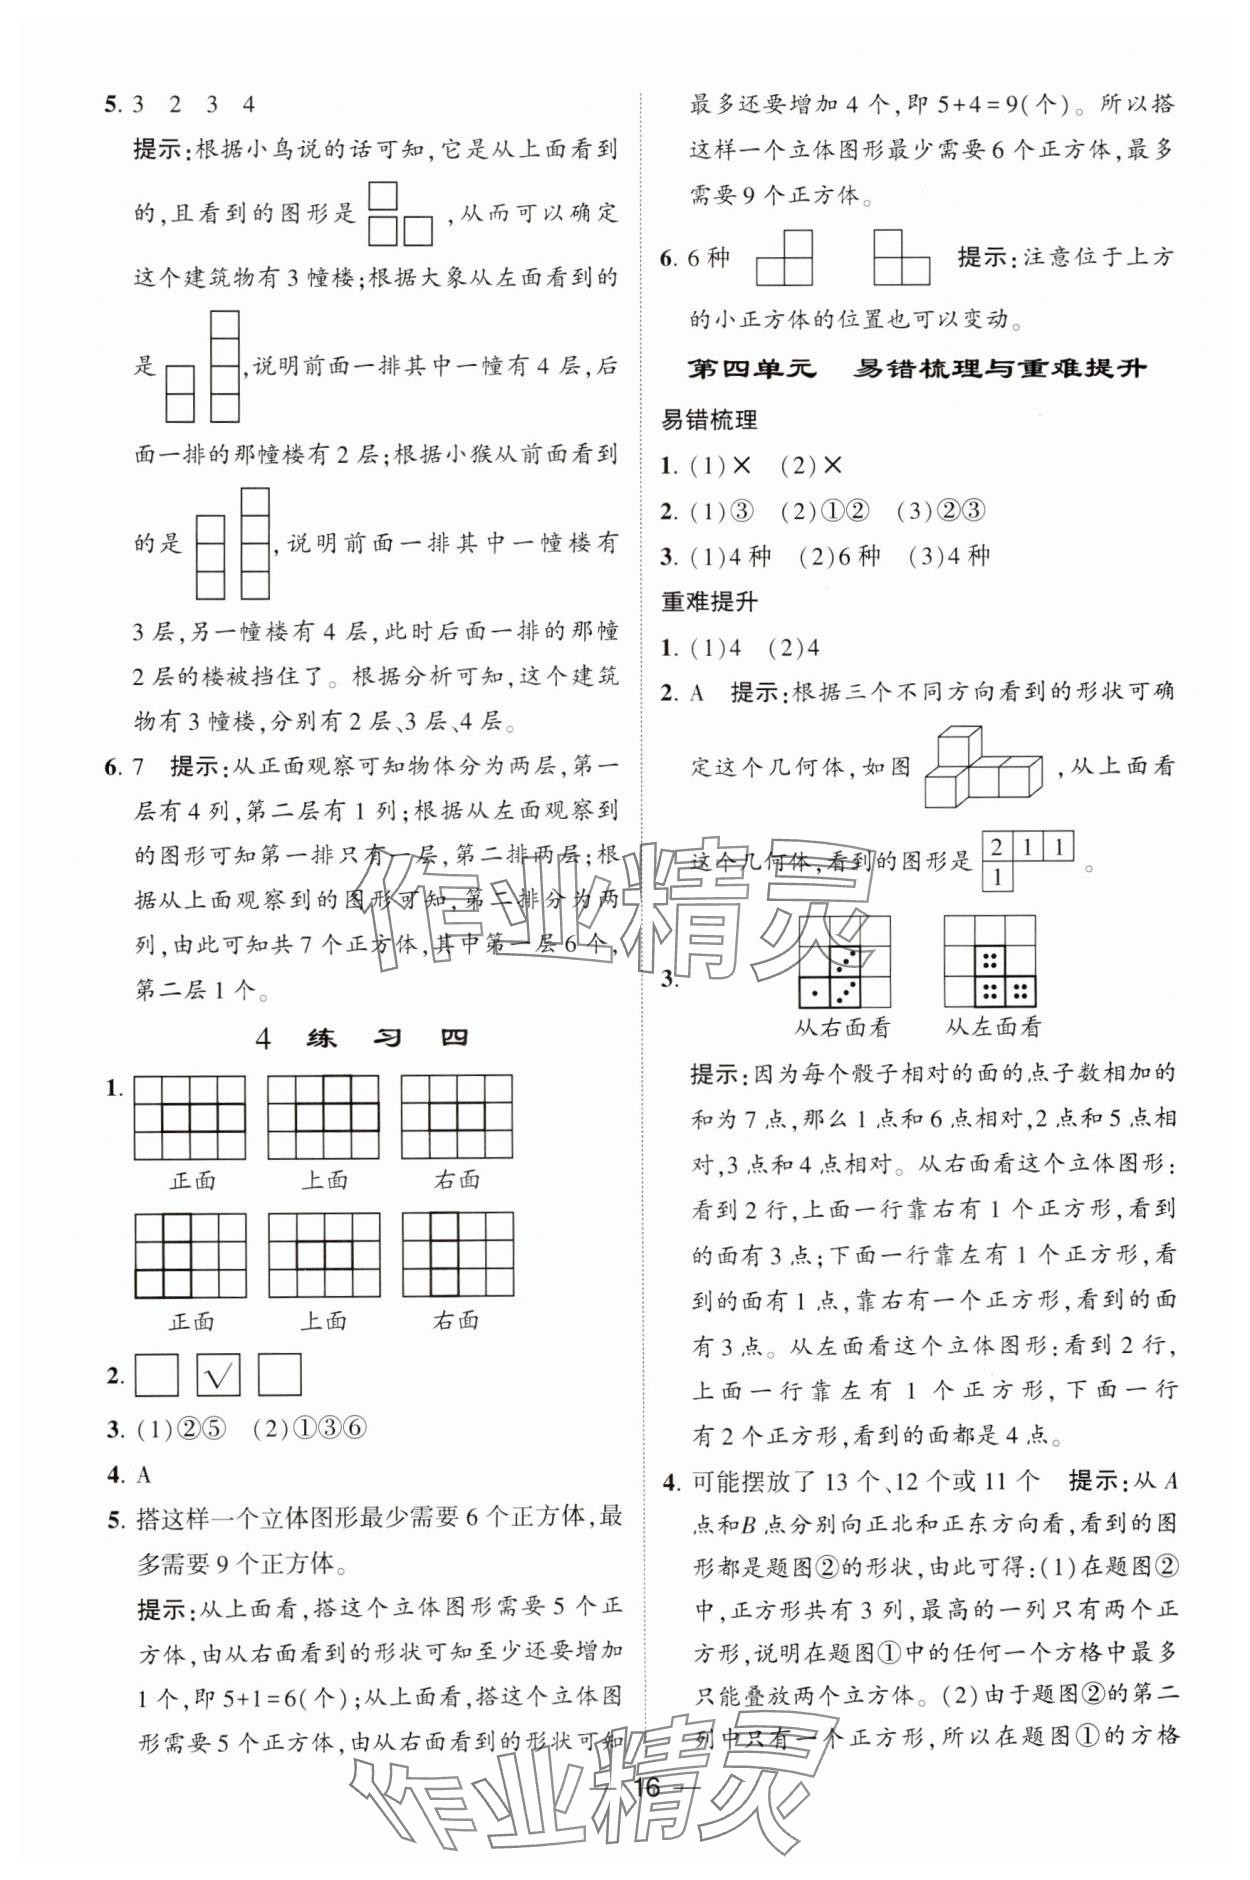 5. 3 2 3 4
提示:根据小鸟说的话可知,它是从上面看到
的,且看到的图形是 ,从而可以确定
这个建筑物有3幢楼;根据大象从左面看到的
是 ,说明前面一排其中一幢有4层,后
面一排的那幢楼有2层;根据小猴从前面看到
的是 ,说明前面一排其中一幢楼有
3层,另一幢楼有4层,此时后面一排的那幢
2层的楼被挡住了。根据分析可知,这个建筑
物有3幢楼,分别有2层、3层、4层。
6. 7 提示:从正面观察可知物体分为两层,第一
层有4列,第二层有1列;根据从左面观察到
的图形可知第一排只有一层,第二排两层;根
据从上面观察到的图形可知,第二排分为两
列,由此可知共7个正方体,其中第一层6个,
第二层1个。
4 练 习 四
1.
正面 上面 右面
正面 上面 右面
2. √
3. (1)②⑤ (2)①③⑥
4. A
5. 搭这样一个立体图形最少需要6个正方体,最
多需要9个正方体。
提示:从上面看,搭这个立体图形需要5个正
方体,由从右面看到的形状可知至少还要增加
1个,即5+1=6(个);从上面看,搭这个立体图
形需要5个正方体,由从右面看到的形状可知
最多还要增加4个,即5+4=9(个)。所以搭
这样一个立体图形最少需要6个正方体,最多
需要9个正方体。
6. 6种 提示:注意位于上方
的小正方体的位置也可以变动。
第四单元 易错梳理与重难提升
易错梳理
1. (1)× (2)×
2. (1)③ (2)①② (3)②③
3. (1)4种 (2)6种 (3)4种
重难提升
1. (1)4 (2)4
2. A 提示:根据三个不同方向看到的形状可确
定这个几何体,如图 ,从上面看
这个几何体,看到的图形是 2 1 1 1 。
3.
从右面看 从左面看
提示:因为每个骰子相对的面的点子数相加的
和为7点,那么1点和6点相对,2点和5点相
对,3点和4点相对。从右面看这个立体图形:
看到2行,上面一行靠右有1个正方形,看到
的面有3点;下面一行靠左有1个正方形,看
到的面有1点,靠右有一个正方形,看到的面
有3点。从左面看这个立体图形:看到2行,
上面一行靠左有1个正方形,下面一行
有2个正方形,看到的面都是4点。
4. 可能摆放了13个、12个或11个 提示:从A
点和B点分别向正北和正东方向看,看到的图
形都是题图②的形状,由此可得:(1)在题图②
中,正方形共有3列,最高的一列只有两个正
方形,说明在题图①中的任何一个方格中最多
只能叠放两个立方体。(2)由于题图②的第二
列中只有一个正方形,所以在题图①的方格
— 16 —
作业精灵
作业精灵